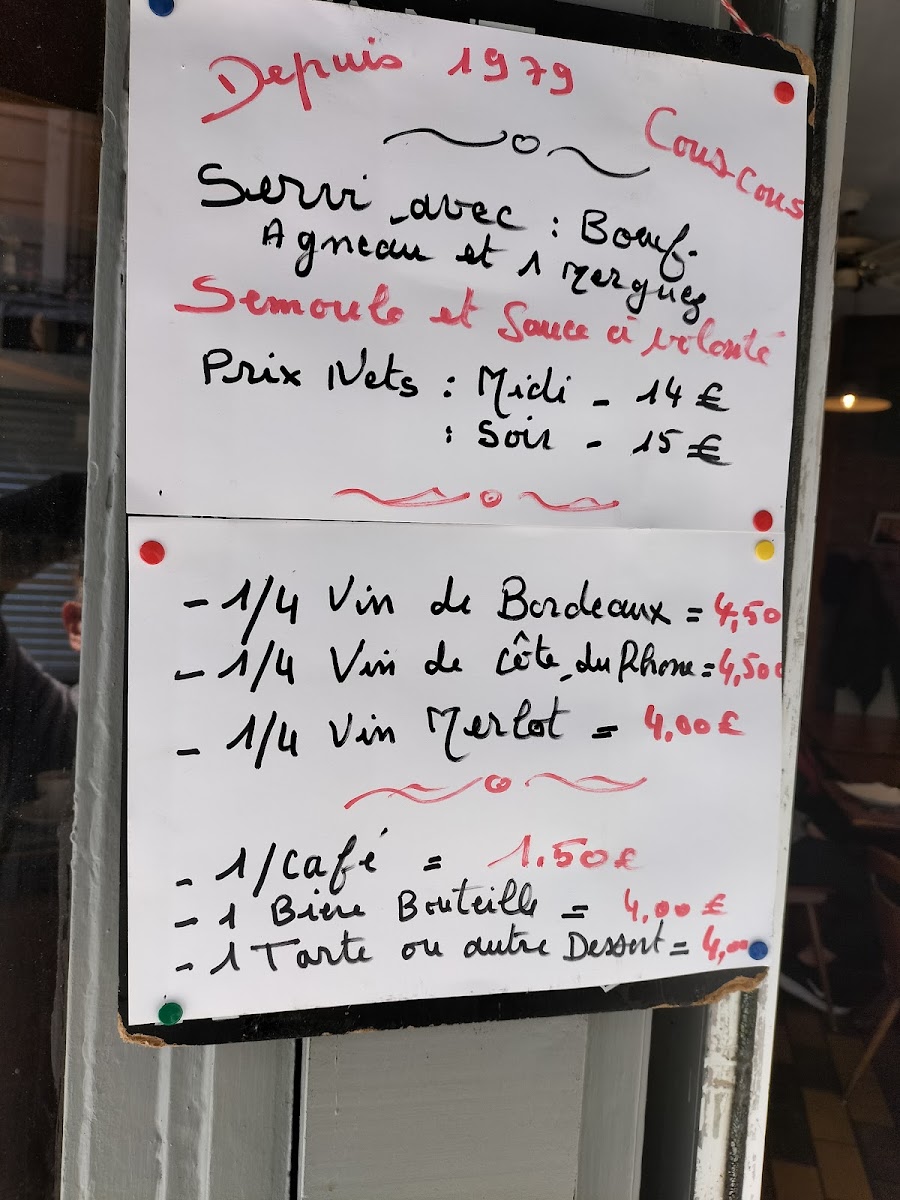 Depuis 1979
Cous-cous
Servi avec : Bœuf.
Agneau et 1 Merguez
Semoule et Sauce à volonté
Prix Nets : Midi - 14 €
: Soir - 15 €
- 1/4 Vin de Bordeaux = 4,50
- 1/4 Vin de Côte du Rhone = 4,50€
- 1/4 Vin Merlot = 4,00 €
- 1/café = 1.50 €
- 1 Bière Bouteille = 4,00 €
- 1 Tarte ou autre Dessert = 4,00